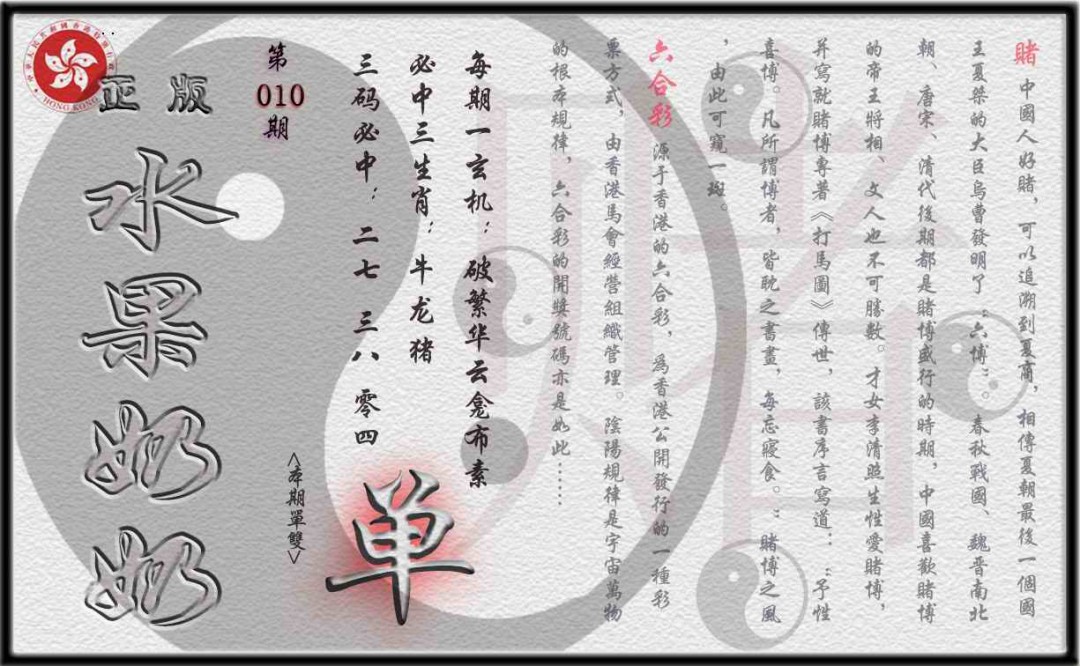 賭 中國人好賭，可以追溯到夏商，相傳夏朝最後一個國
王夏桀的大臣烏曹發明了“六博”。春秋戰國、魏晋南北
朝、唐宋、清代後期都是賭博盛行的時期，中國喜歡賭博
的帝王將相、文人也不可勝數。才女李清照生性愛賭博，
并寫就賭博專著《打馬圖》傳世，該書序言寫道：“予性
喜博。凡所謂博者，皆耽之書晝，每忘寢食。”賭博之風
，由此可窺一斑。
六合彩 源于香港的六合彩，爲香港公開發行的一種彩
票方式，由香港馬會經營組織管理。陰陽規律是宇宙萬物
的根本規律，六合彩的開獎號碼亦是如此……
每期一玄机：破繁华云龛布素
必中三生肖：牛龙猪
三码必中：二七 三八 零四
单
<本期單雙>
第
010
期
正版
水果奶奶
HONG KONG